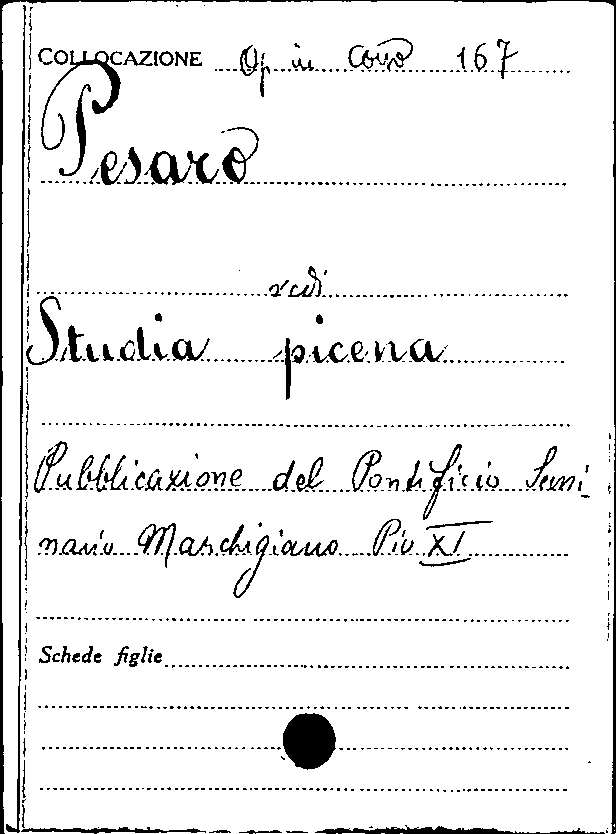 COLLOCAZIONE Op in Corso 167
Pesaro
vedi
Studia picena
Pubblicazione del Pontificio Semi-
nario Marchigiano Pio XI
Schede figlie